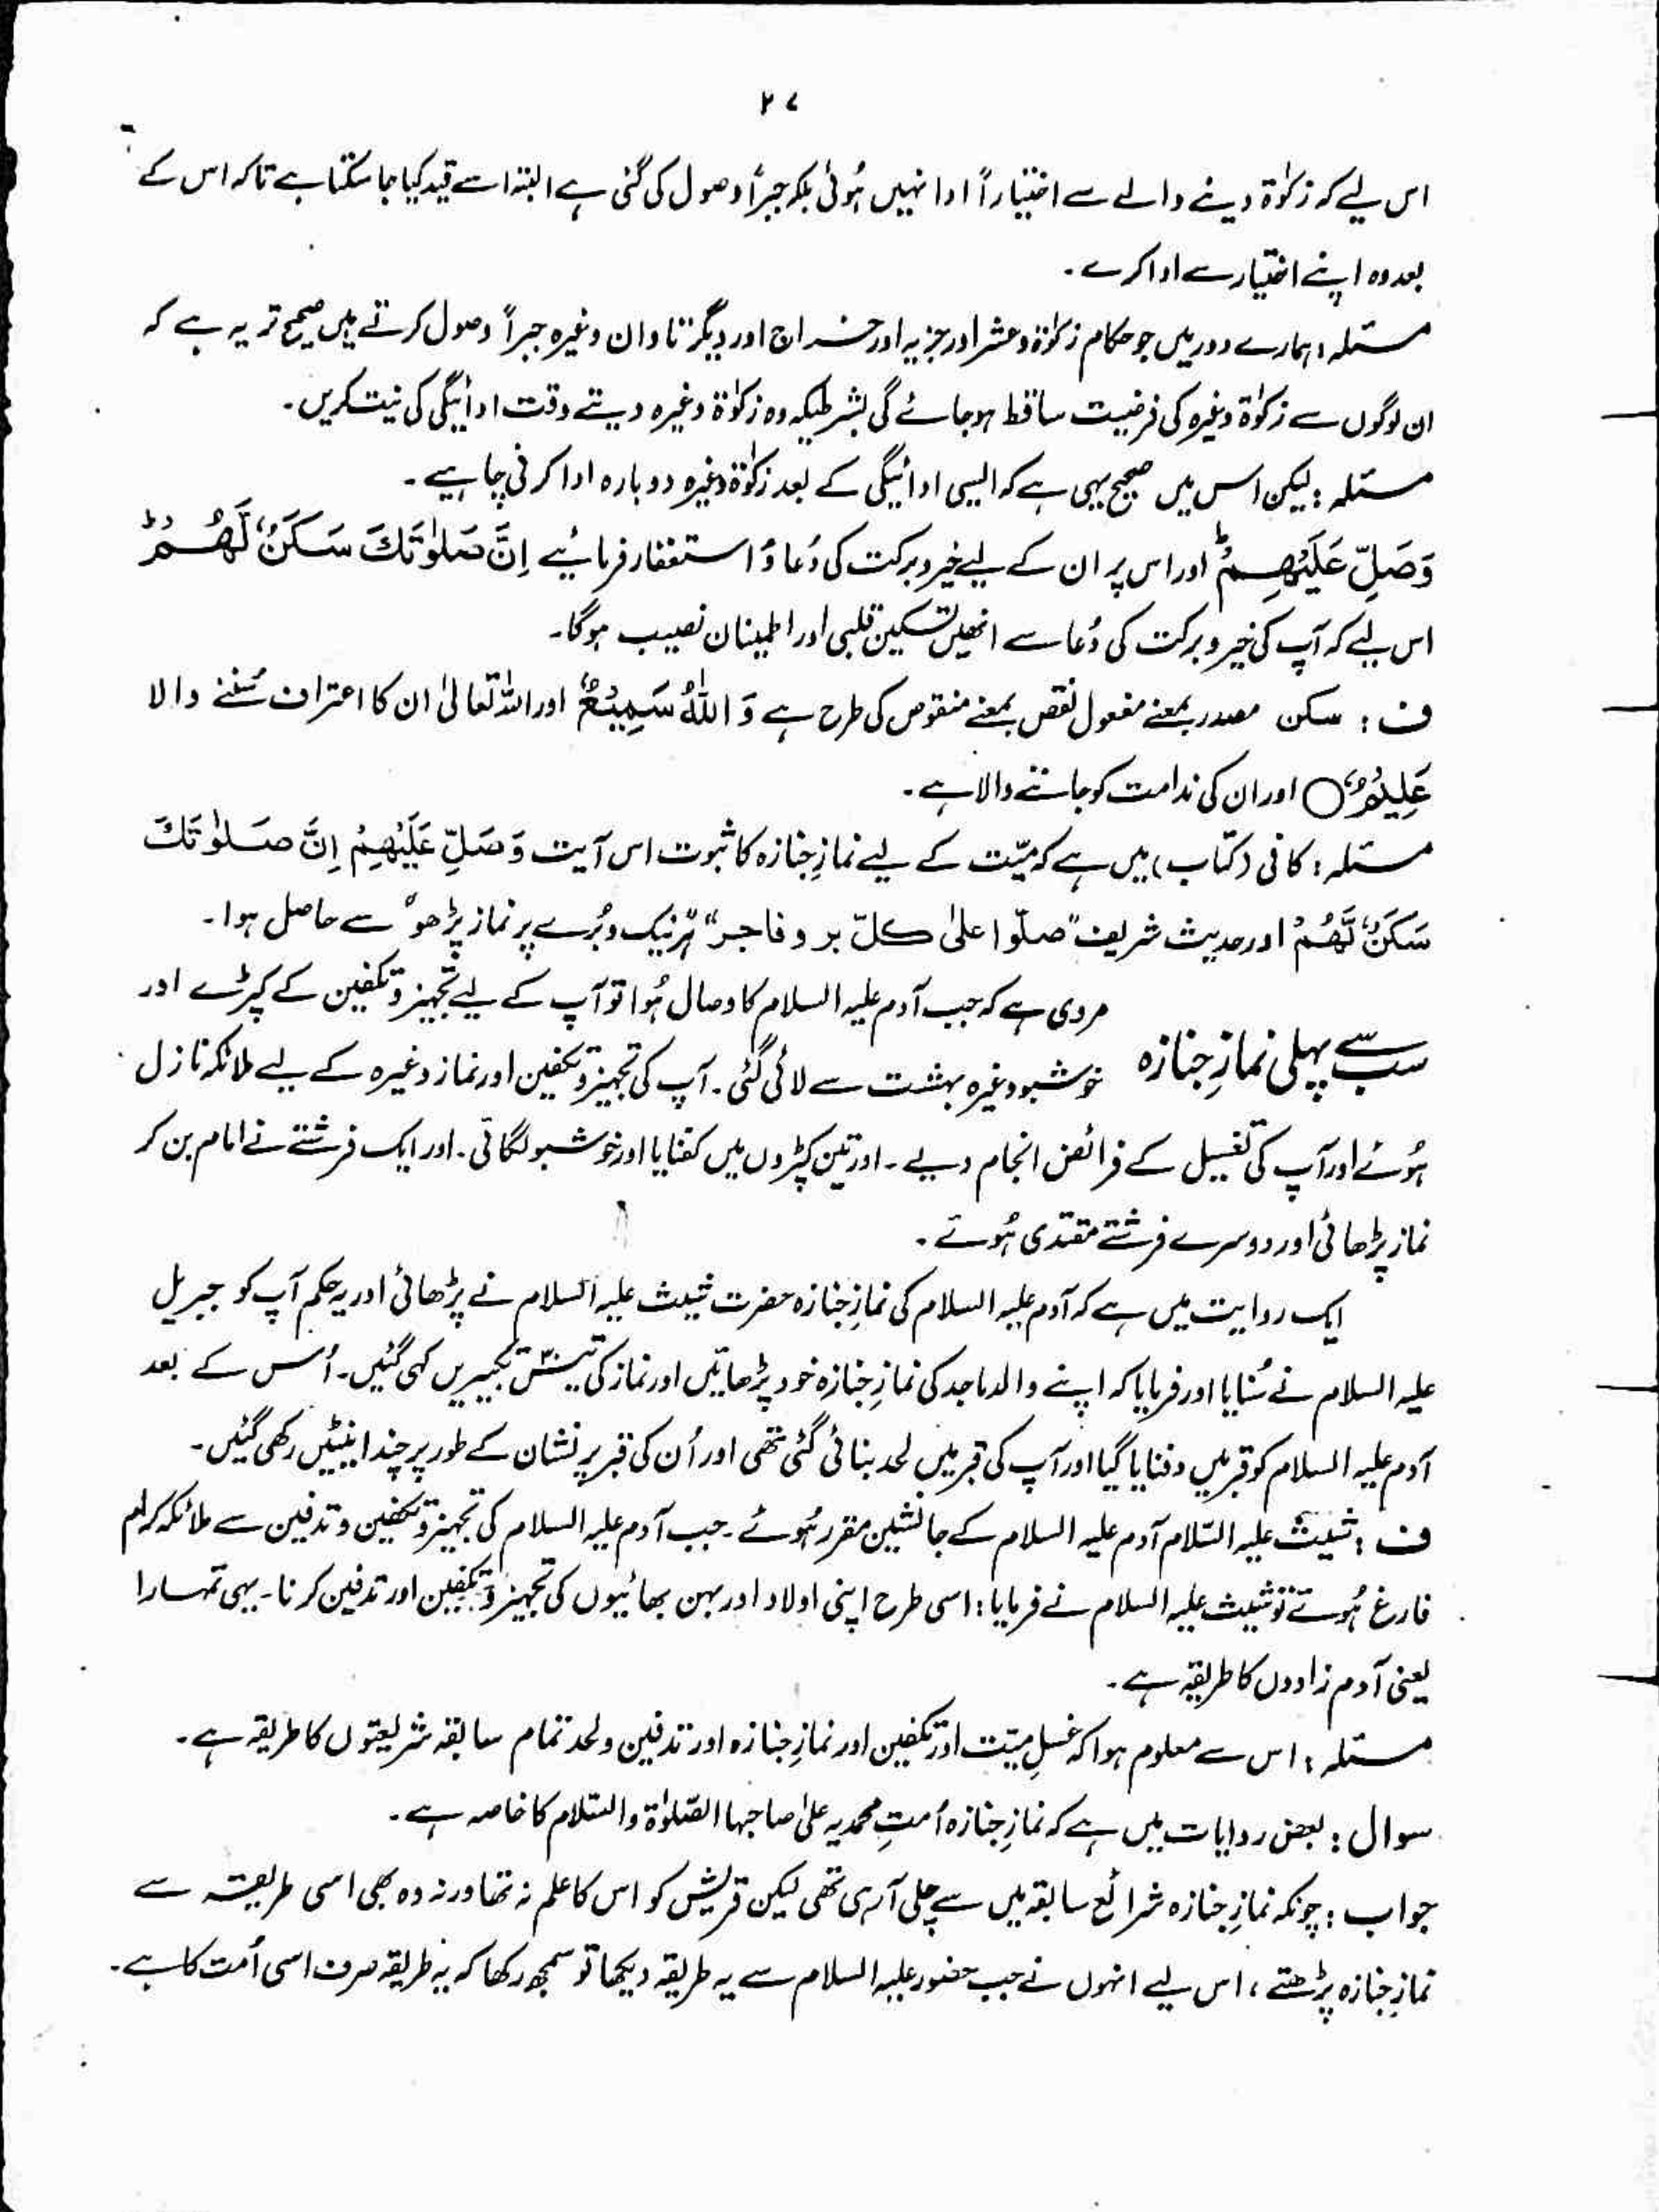 ۲۷
اس لیے کہ زکوٰۃ دینے والے سے اختیاراً ادا نہیں ہُوئی بلکہ جبراً وصول کی گئی ہے البتہ اسے قید کیا جا سکتا ہے تاکہ اس کے
بعد وہ اپنے اختیار سے ادا کرے۔
مسئلہ: ہمارے دور میں جو حکام زکوٰۃ و عشر اور جزیہ اور خراج اور دیگر تاوان وغیرہ جبراً وصول کرتے ہیں صحیح تر یہ ہے کہ
ان لوگوں سے زکوٰۃ وغیرہ کی فرضیت ساقط ہو جائے گی بشرطیکہ وہ زکوٰۃ وغیرہ دیتے وقت ادائیگی کی نیت کریں۔
مسئلہ: لیکن اس میں صحیح یہی ہے کہ ایسی ادائیگی کے بعد زکوٰۃ وغیرہ دوبارہ ادا کرنی چاہیے۔
وَصَلِّ عَلَيْهِمْ ؕ اور اس پر ان کے لیے خیر و برکت کی دُعا و استغفار فرمائیے اِنَّ صَلٰوتَكَ سَكَنٌ لَّهُمْ ؕ
اس لیے کہ آپ کی خیر و برکت کی دُعا سے انھیں تسکین قلبی اور اطمینان نصیب ہوگا۔
ف: سکن مصدر بمعنے مفعول نقص بمعنے منقوص کی طرح ہے وَ اللّٰهُ سَمِيْعٌ اور اللہ تعالیٰ ان کا اعتراف سُننے والا
عَلِيْمٌ ○ اور ان کی ندامت کو جاننے والا ہے۔
مسئلہ: کافی (کتاب) میں ہے کہ میّت کے لیے نمازِ جنازہ کا ثبوت اس آیت وَصَلِّ عَلَيْهِمْ اِنَّ صَلٰوتَكَ
سَكَنٌ لَّهُمْ اور حدیث شریف "صلّوا علیٰ کلّ بر و فاجر" "ہر نیک و بُرے پر نماز پڑھو" سے حاصل ہوا۔
سب سے پہلی نمازِ جنازہ مروی ہے کہ جب آدم علیہ السلام کا وصال ہُوا تو آپ کے لیے تجہیز و تکفین کے کپڑے اور
خوشبو وغیرہ بہشت سے لائی گئی۔ آپ کی تجہیز و تکفین اور نماز وغیرہ کے لیے ملائکہ نازل
ہُوئے اور آپ کی تغسیل کے فرائض انجام دیے۔ اور تین کپڑوں میں کفنایا اور خوشبو لگائی۔ اور ایک فرشتے نے امام بن کر
نماز پڑھائی اور دوسرے فرشتے مقتدی ہُوئے۔
ایک روایت میں ہے کہ آدم علیہ السلام کی نمازِ جنازہ حضرت شیث علیہ السلام نے پڑھائی اور یہ حکم آپ کو جبریل
علیہ السلام نے سُنایا اور فرمایا کہ اپنے والد ماجد کی نمازِ جنازہ خود پڑھائیں اور نماز کی تکبیریں کہی گئیں۔ اُس کے بعد
آدم علیہ السلام کو قبر میں دفنایا گیا اور آپ کی قبر میں لحد بنائی گئی تھی اور اُن کی قبر پر نشان کے طور پر چند اینٹیں رکھی گئیں۔
ف: شیث علیہ السّلام آدم علیہ السلام کے جانشین مقرر ہُوئے۔ جب آدم علیہ السلام کی تجہیز و تکفین و تدفین سے ملائکہ کرام
فارغ ہُوئے تو شیث علیہ السلام نے فرمایا: اسی طرح اپنی اولاد اور بہن بھائیوں کی تجہیز و تکفین اور تدفین کرنا۔ یہی تمہارا
یعنی آدم زادوں کا طریقہ ہے۔
مسئلہ: اس سے معلوم ہوا کہ غسلِ میّت اور تکفین اور نمازِ جنازہ اور تدفین و لحد تمام سابقہ شریعتوں کا طریقہ ہے۔
سوال: بعض روایات میں ہے کہ نمازِ جنازہ اُمتِ محمدیہ علیٰ صاحبہا الصّلوٰۃ والسّلام کا خاصہ ہے۔
جواب: چونکہ نمازِ جنازہ شرائع سابقہ میں سے چلی آرہی تھی لیکن قریش کو اس کا علم نہ تھا ورنہ وہ بھی اسی طریقہ سے
نمازِ جنازہ پڑھتے، اس لیے انہوں نے جب حضور علیہ السلام سے یہ طریقہ دیکھا تو سمجھ رکھا کہ یہ طریقہ صرف اسی اُمت کا ہے۔